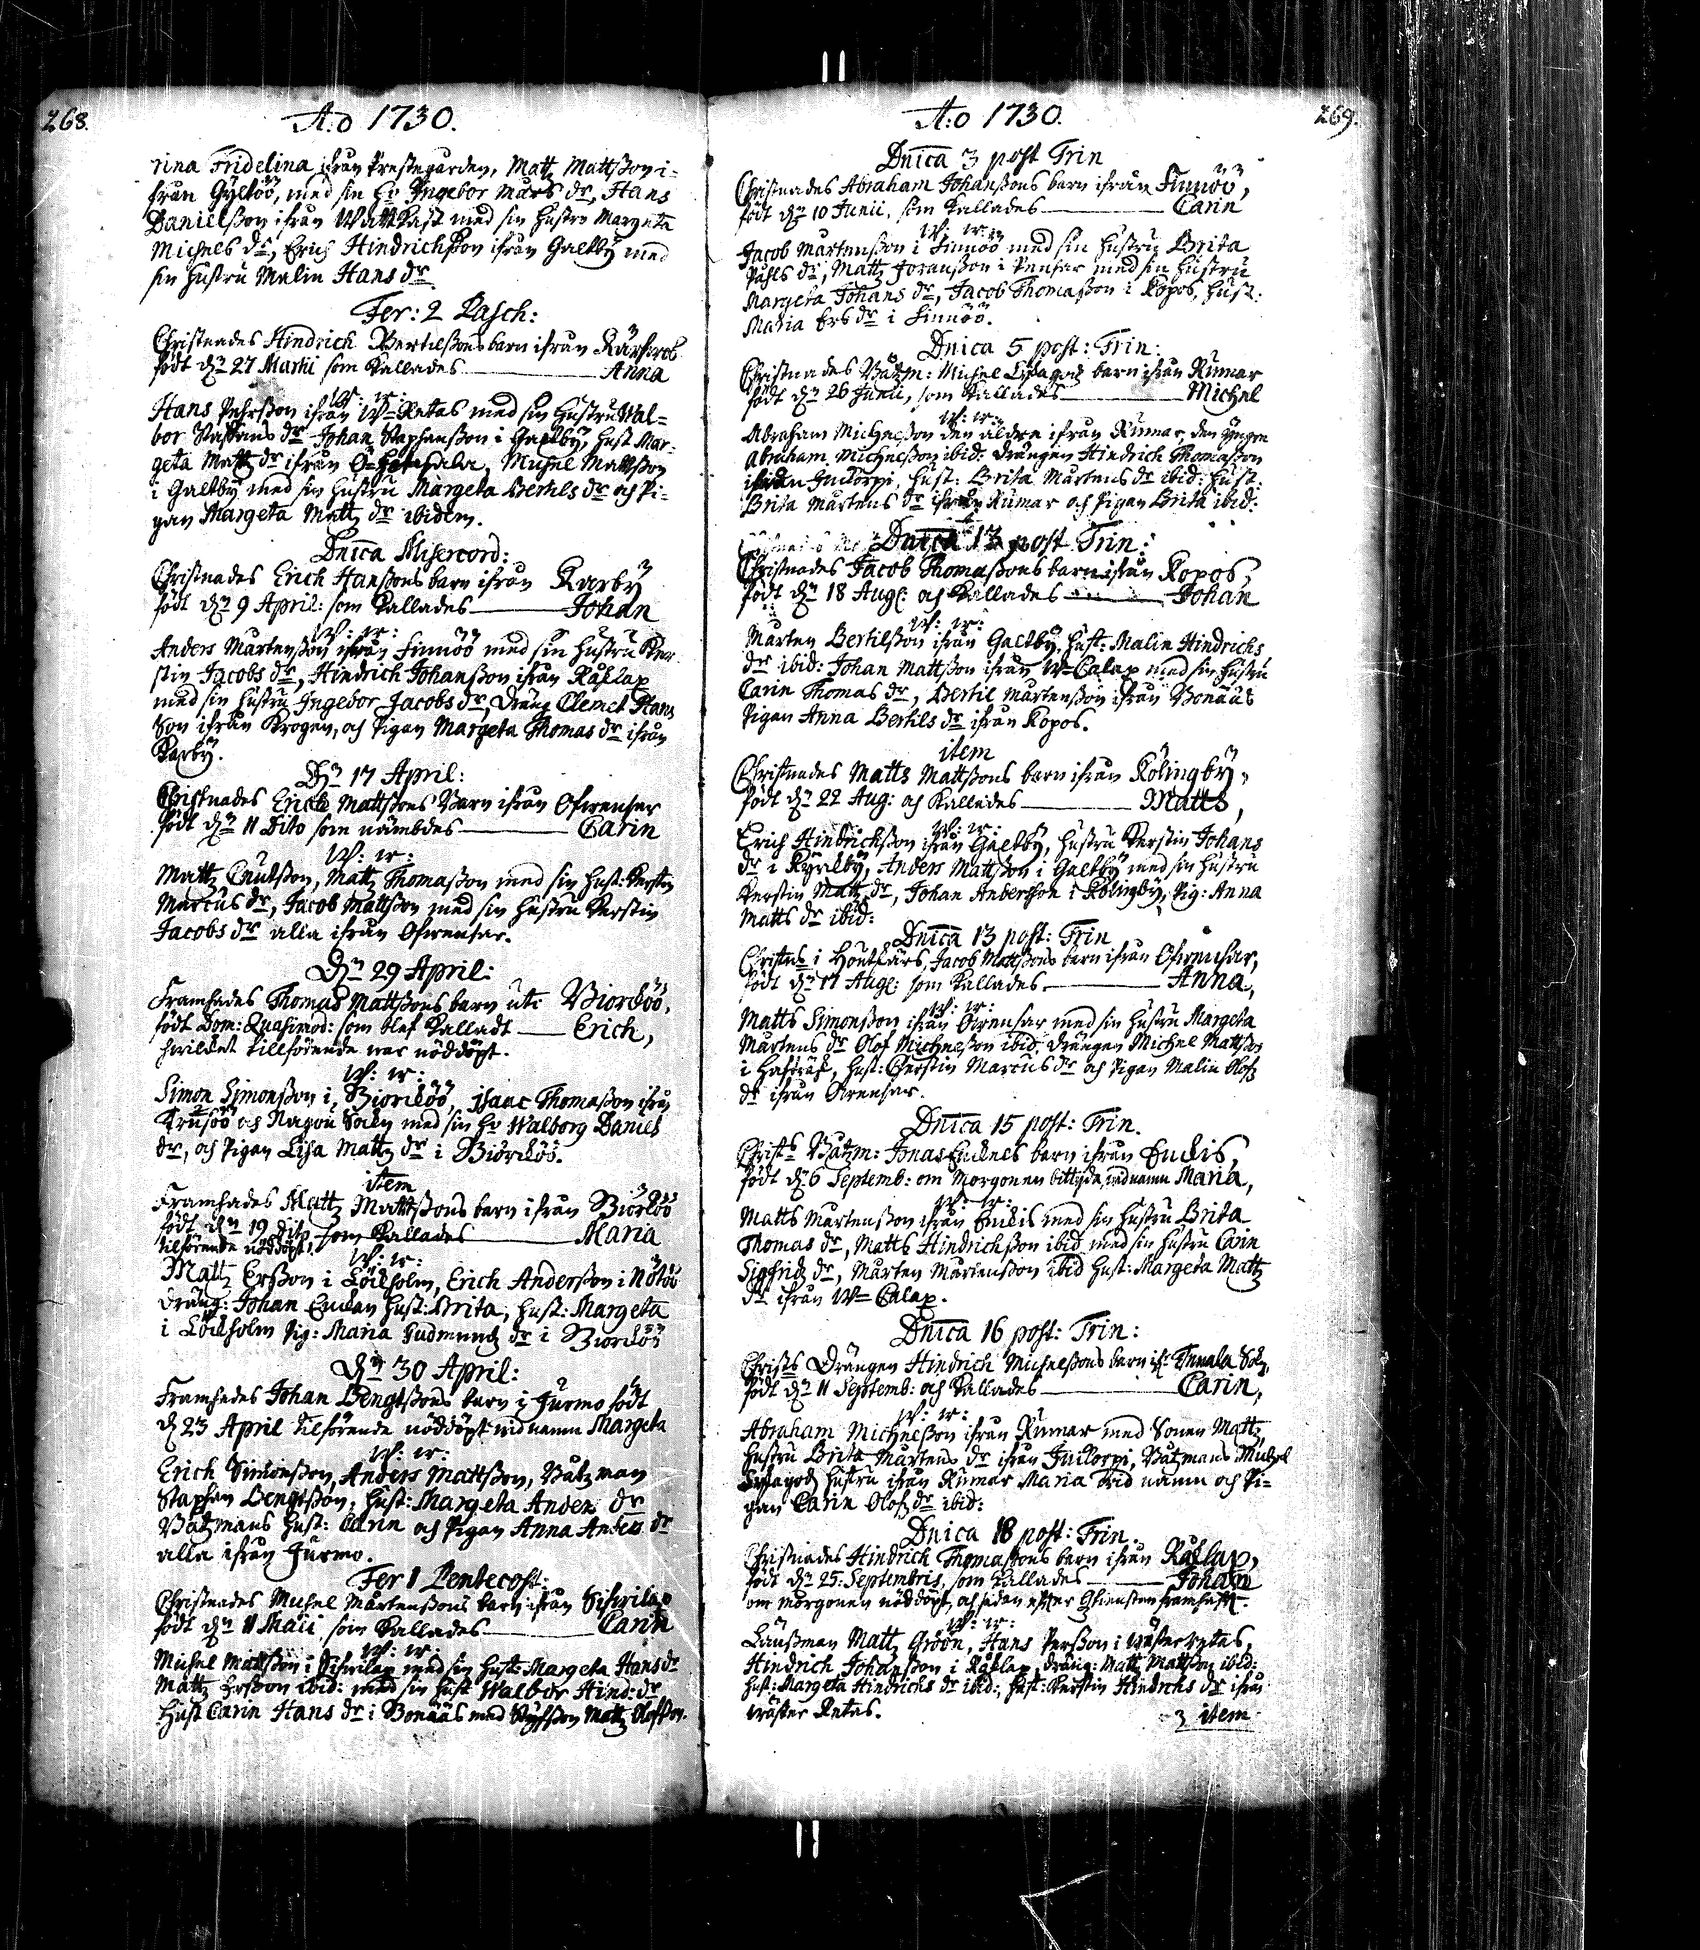 268.
A:o 1730.
rina Fridelina ifrån Prestegården, Matz Mattßon i-
från Gyltöö, med sin h: Ingebor Mårs dr, Hans
Danielßon ifrån Wattkast med sin hustru Margeta
Michels dr, Erich Hindrichßon ifrån Galtby med
sin hustru Malin Hans dr
Fer: 2 Pasch:
Christnades Hindrich Bertilßons barn ifrån
födt dn 27 Martii som kallades Anna
W: w:
Hans Pehrßon ifrån W- Retas med sin hustru Wal-
bor Staffans dr Johan Staphanßon i Galtby, hust Mar-
geta Matz dr ifrån Michel Mattßon
i Galtby med sin hustru Margeta Bertils dr och Pi-
gan Margeta Matz dr ibidem.
Dnica Misercord:
Christnades Erich Hanßons barn ifrån Karby
födt dn 9 April: som kallades Johan
W: w:
Anders Mårtenßon ifrån Finnöö med sin hustru Ker-
stin Jacobs dr, Hindrich Johanßon ifrån Råslax
med sin hustru Ingebor Jacobs dr, Dräng Clemet Hans
Son ifrån Krogen, och Pigan Margeta Thomas dr ifrån
Karby.
Dn 17 April:
Christnades Erich Mattßons Barn ifrån Ofwensar
födt dn 11 Dito som nämbdes Carin
W: w:
Matz Cnutßon, Matz Thomaßon med sin hust: Kerstin
Marcus dr, Jacob Mattßon med sin hustru Kerstin
Jacobs dr alla ifrån Ofwensar.
Dn 29 April:
Framhades Thomas Mattßons barn uti Biörköö,
födt Dom: Quasimod: som blef kalladt Erich,
hwilket tillförende war nöddöpt.
W: w:
Simon Simonßon i Biörköö, Isaac Thomaßon ifrån
Trusöö och Nagou Sokn med sin h: Walborg Daniels
dr, och Pigan Lisa Matz dr i Biörköö.
item
Framhades Matz Mattßons barn ifrån Biörköö
födt dn 19 Dito som kallades Maria
tilförende nöddöpt.
W: w:
Matz Erßon i Löikholm, Erich Anderßon i Nötöö
dräng: Johan hust: Brita, hust: Margeta
i Löikholm Pig: Maria Gudmundz dr i Biörköö
Dn 30 April:
Framhades Johan Bengtßons barn i Jurmo födt
d 23 April tilförende nöddöpt wid namn Margeta
W: w:
Erich Simonßon, Anders Mattßon, Båtzman
Staphan Bengtßon, hust: Margeta Anders dr
Båtzmans hust: Carin och Pigan Anna Anders dr
alla ifrån Jurmo.
Fer 1 Pentecost:
Christnades Michel Mårtenßons barn ifrån
födt dn 11 Maii, som kallades Carin
W: w:
Michel Mattßon i med sin hust: Margeta Hans dr
Matz Erßon ibid: med sin hust Walbor Hind: dr
Hust Carin Hans dr i Bonääs med Matz Olofßon.
269.
A:o 1730.
Dnica 3 post Trin
Christnades Abraham Johanßons barn ifrån Finnöö,
födt dn 10 Junii, som kallades Carin
W: w:
Jacob Mårtenßon i Finnöö med sin hustru Brita
Påhls dr, Matz Joranßon i Pensar med sin hustru
Margeta Johans dr, Jacob Thomaßon i Kopos, hust:
Maria Ers dr i Finnöö.
Dnica 5 post: Trin:
Christnades Båtzm: Michel barn ifrån Rumar
födt dn 26 Junii, som kallades Michel
W: w:
Abraham Michelßon den äldre ifrån Rumar, den yngre
Abraham Michelßon ibid: drängen Hindrich Thomaßon
hust: Brita Mårtens dr ibid: hust:
Brita Mårtens dr ifrån Rumar och Pigan Brita ibid:
Dnica 13 post Trin:
Christnades Jacob Thomaßons barn ifrån Kopos,
födt dn 18 Aug: och kallades Johan
W: w:
Mårten Bertilßon ifrån Galtby, hust: Malin Hindrichs
dr ibid: Johan Mattßon ifrån W- Calax med sin hustru
Carin Thomas dr, Bertil Mårtenßon ifrån Bonääs
Pigan Anna Bertils dr ifrån Kopos.
item
Christnades Matts Mattßons barn ifrån Kölingby,
födt dn 22 Aug: och kallades Matts,
W: w:
Erich Hindrichßon ifrån Galtby, hustru Kerstin Johans
dr i Kyrkby, Anders Mattßon i Galtby med sin hustru
Kerstin Matz dr, Johan Anderßon i Kölingby, Pig: Anna
Matts dr ibid:
Dnica 13 post: Trin
Christns i Houtskärs, Jacob Mattßons barn ifrån Ofwensar,
födt dn 17 Aug: som kallades Anna,
W: w:
Matts Simonßon ifrån Ofwensar med sin hustru Margeta
Mårtens dr Olof Michelßon ibid, drängen Michel Mattßon
i hust: Cherstin Marcus dr och Pigan Malin Olofz
dr ifrån Ofwensar.
Dnica 15 post: Trin.
Christs Båtzm: Jonas barn ifrån Enckis,
födt d: 6 Septemb: om Morgonen bittyda, wid namn Maria,
W: w:
Matts Mårtenßon ifrån Enckis med sin hustru Brita
Thomas dr, Matts Hindrichßon ibid med sin hustru Carin
Sigfridz dr, Mårten Mårtenßon ibid hust: Margeta Matz
dr ifrån W- Calax.
Dnica 16 post: Trin:
Christs Drängen Hindrich Michelßons barn if: Sokn,
födt dn 11 Septemb: och kallades Carin,
W: w:
Abraham Michelßon ifrån Rumar med Sonen Matz,
hustru Brita Mårtens dr ifrån Båtzmans Michel
hustru ifrån Rumar Maria wid namn och Pi-
gan Carin Olofz dr ibid:
Dnica 18 post: Trin.
Christnades Hindrich Thomaßons barn ifrån Råslax,
födt dn 25 Septembris, som kallades Johan
om morgonen nöddöpt, och sedan efter Gtiensten framhafft.
W: w:
Länßman Matz Gröön, Hans Perßon i wäster retas,
Hindrich Johanßon i Råslax, dräng: Matz Mattßon ibid:
hust: Margeta Hindrichs dr ibid:, hust: Kerstin Hindrichs dr ifrån
wäster Retas.
item